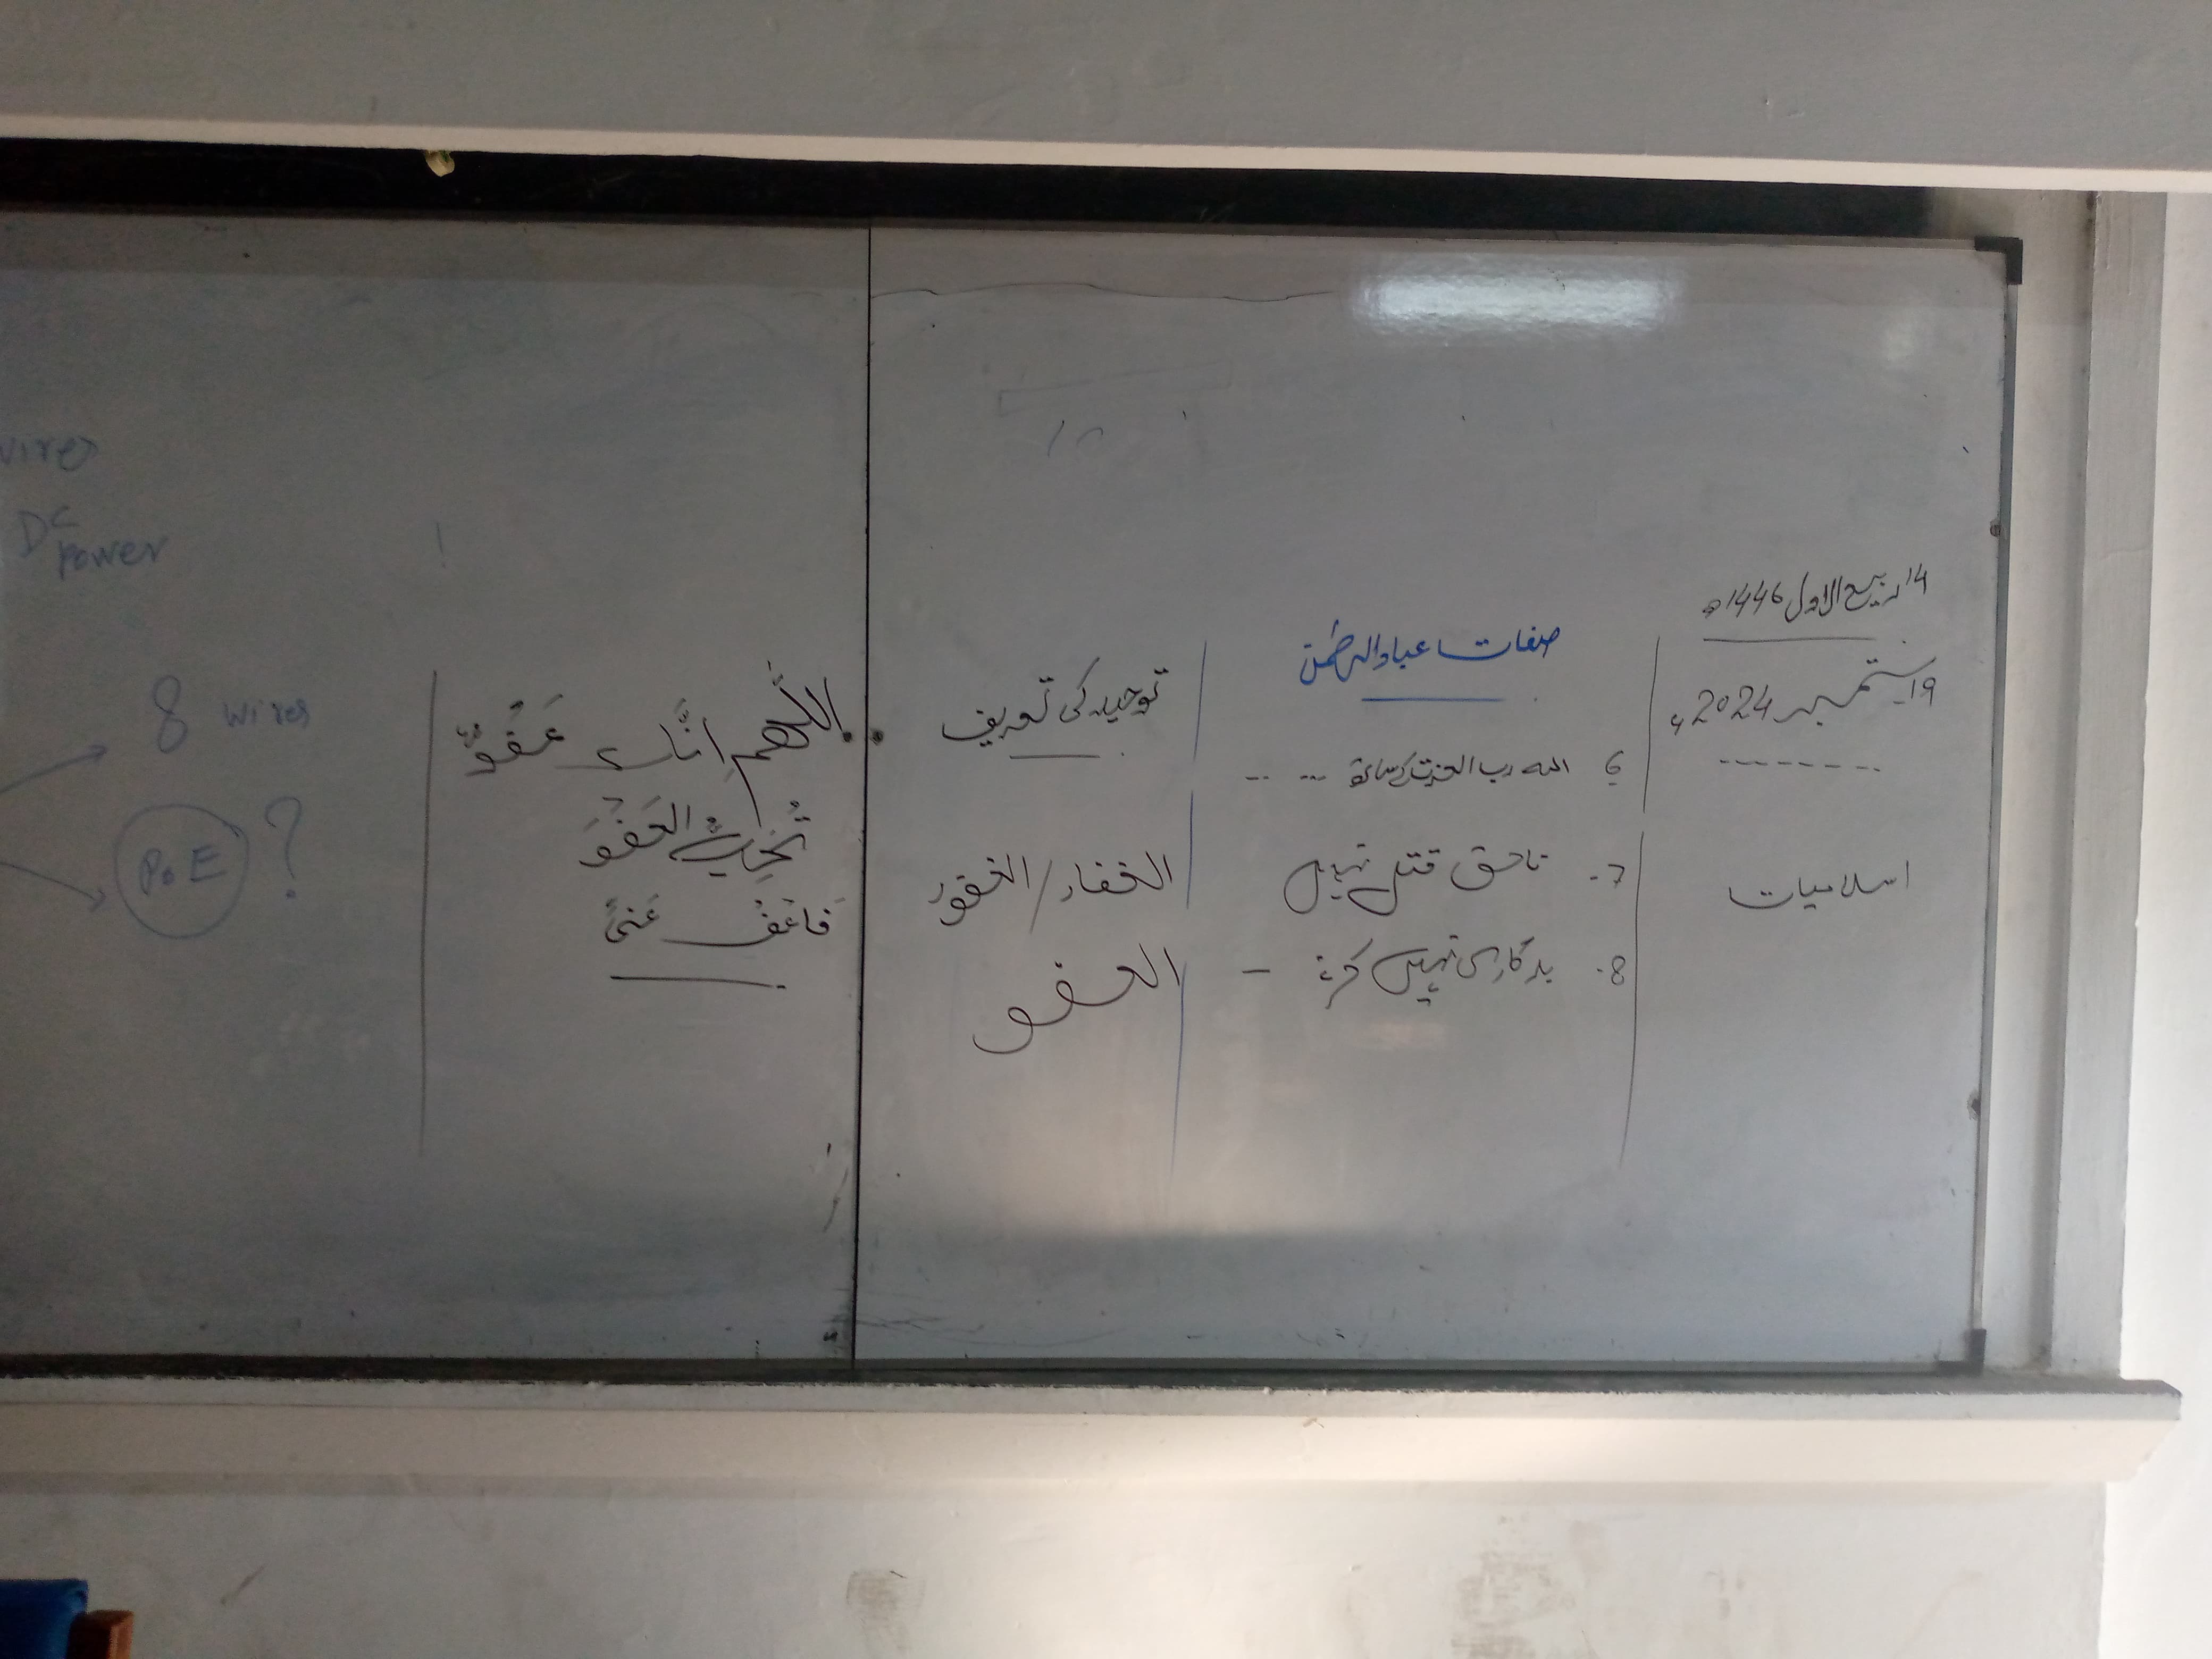 14 ربیع الاول 1446ھ
19 ستمبر 2024ء
--------
اسلامیات
صفات عباد الرحمٰن
6 اللہ رب العزت کے ساتھ --- --
7. ناحق قتل نہیں
8. بدکاری نہیں کرتے -
توحید کی تعریف
الغفار / الغفور
العفو
اللّٰھم اِنَّکَ عَفُوٌّ
تُحِبُّ العَفْوَ
فَاعْفُ عَنِّی
wires
DC
Power
8 wires
PoE ?